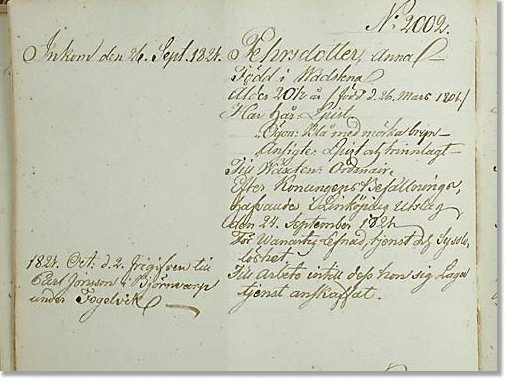 No 2002.
Inkom den 26. Sept. 1824.
Pehrsdotter, Anna
Född i Wadstena
Ålder 20½ år / född d. 26. Mars 1804/
Har hår: Ljust
Ögon: Blå med mörka bryn
Ansigte: Ljust och trinnlagt
Till Wäxten: Ordinair.
Efter Konungens Befallnings,
hafvande i Linköping Utslag
den 24. September 1824
För Wanartig Lefnad, tjenst och Syssle
löshet
Till Arbete intill dess hon sig Laga
tjenst anskaffat.
1824. Oct. d. 2. frigifven till
Jonson i Björnwarp
under Fogelvik